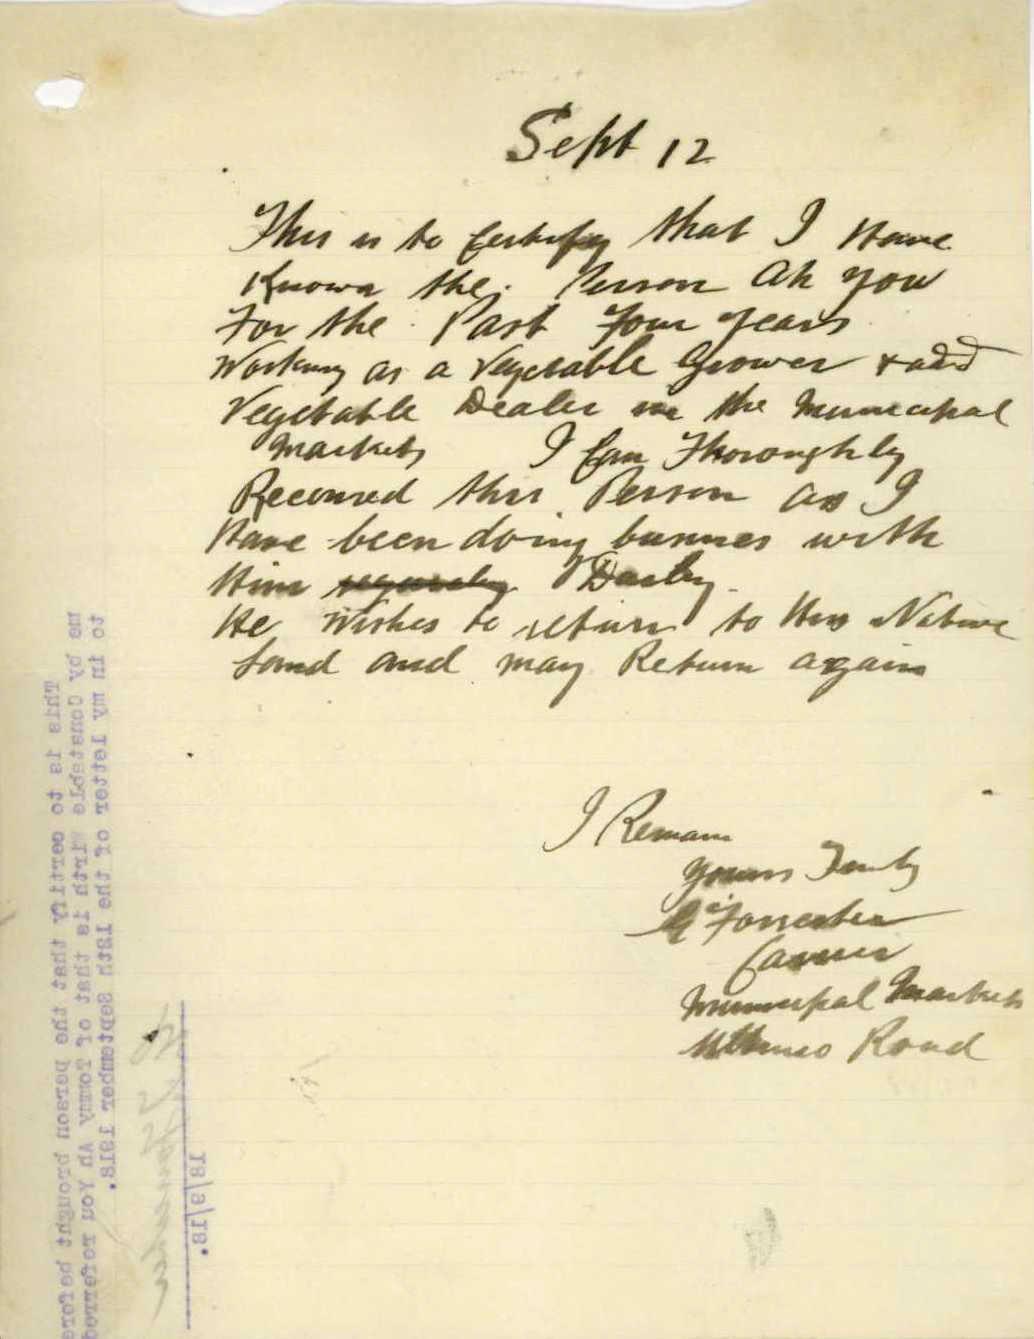 Sept 12
This is to Certify that I Have
Known the Person Ah You
For the Past Four Years
Working as a Vegetable Grower + add
Vegetable Dealer in the Municipal
Markets I Can Thoroughly
Recomed this Person as I
Have been doing busnies with
Him regurley Dailey.
He Wishes to return to His Native
Land and may Return again
I Remain
Yours Truly
G Forrester
Carrier
Municipal Markets
Road
This is to certify that the person brought before
me by Constable Wirth is that of Tommy Ah You referred
to in my letter of the 12th September 1918.
18/9/18.